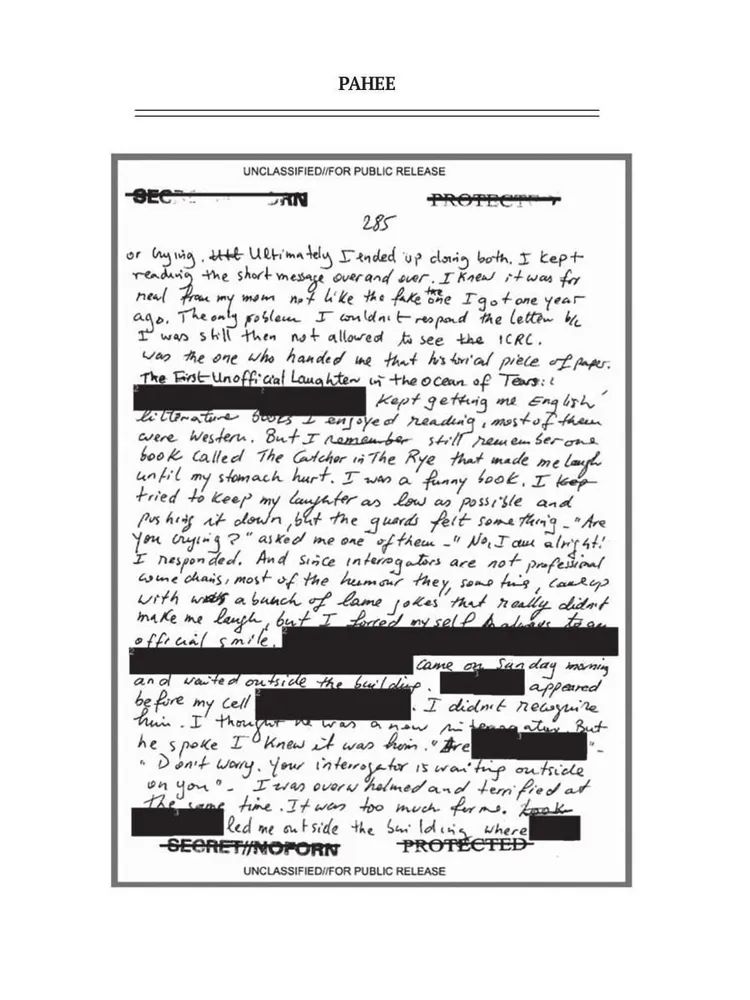 PAHEE
UNCLASSIFIED//FOR PUBLIC RELEASE
PROTECTED
285
or crying. Ultimately I ended up doing both. I kept
reading the short message over and over. I knew it was for
real from my mom not like the fake one I got one year
ago. The only problem I couldn't respond the letter b/c
I was still then not allowed to see the ICRC.
was the one who handed me that historical piece of paper.
The First Unofficial Laughter in the ocean of Tears:
Kept getting me English
litterature books I enjoyed reading, most of them
were Western. But I remember still remember one
book called The Catcher in The Rye that made me laugh
until my stomach hurt. I was a funny book. I kep
tried to keep my laughter as low as possible and
pushing it down, but the guards felt something - "Are
you crying?" asked me one of them - "No, I am alright!
I responded. And since interrogators are not professional
comedians, most of the humour they, came up
with was a bunch of lame jokes that really didn't
make me laugh, but I forced myself always to an
official smile.
came on Sunday morning
and waited outside the building. appeared
before my cell . I didn't recognize
him. I thought he was a new interrogator. But
he spoke I knew it was him. "Are " -
"Don't worry. Your interrogator is waiting outside
on you" - I was overwhelmed and terrified at
the same time. It was too much for me.
led me outside the building where
SECRET//NOFORN PROTECTED
UNCLASSIFIED//FOR PUBLIC RELEASE